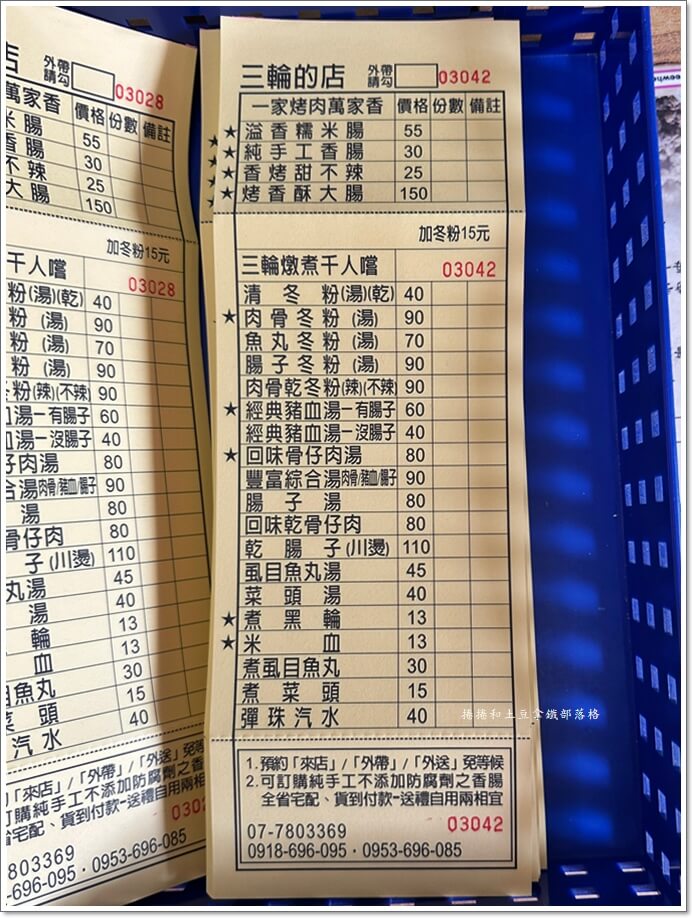 店 外帶請勾 03028
萬家香 價格 份數 備註
米腸 55
香腸 30
不辣 25
大腸 150
加冬粉15元
千人嚐 03028
粉(湯)(乾) 40
粉 (湯) 90
粉 (湯) 70
粉 (湯) 90
冬粉(辣)(不辣) 90
血湯-有腸子 60
血湯-沒腸子 40
仔肉湯 80
合湯肉骨/豬血/腸子 90
湯 80
骨仔肉 80
子(川燙) 110
丸湯 45
湯 40
輪 13
血 13
目魚丸 30
菜頭 15
汽水 40
「來店」/「外帶」/「外送」免等候
訂購純手工不添加防腐劑之香腸
全省宅配、貨到付款-送禮自用兩相宜
7803369
8-696-095・0953-696-085
三輪的店 外帶請勾 03042
一家烤肉萬家香 價格 份數 備註
★溢香糯米腸 55
★純手工香腸 30
★香烤甜不辣 25
★烤香酥大腸 150
加冬粉15元
三輪燉煮千人嚐 03042
清冬粉(湯)(乾) 40
★肉骨冬粉(湯) 90
魚丸冬粉(湯) 70
腸子冬粉(湯) 90
肉骨乾冬粉(辣)(不辣) 90
★經典豬血湯-有腸子 60
經典豬血湯-沒腸子 40
★回味骨仔肉湯 80
豐富綜合湯肉骨/豬血/腸子 90
腸子湯 80
回味乾骨仔肉 80
乾腸子(川燙) 110
虱目魚丸湯 45
菜頭湯 40
★煮黑輪 13
★米血 13
煮虱目魚丸 30
煮菜頭 15
彈珠汽水 40
捲捲和土豆拿鐵部落格
1.預約「來店」/「外帶」/「外送」免等候
2.可訂購純手工不添加防腐劑之香腸
全省宅配、貨到付款-送禮自用兩相宜
07-7803369 03042
0918-696-095・0953-696-085